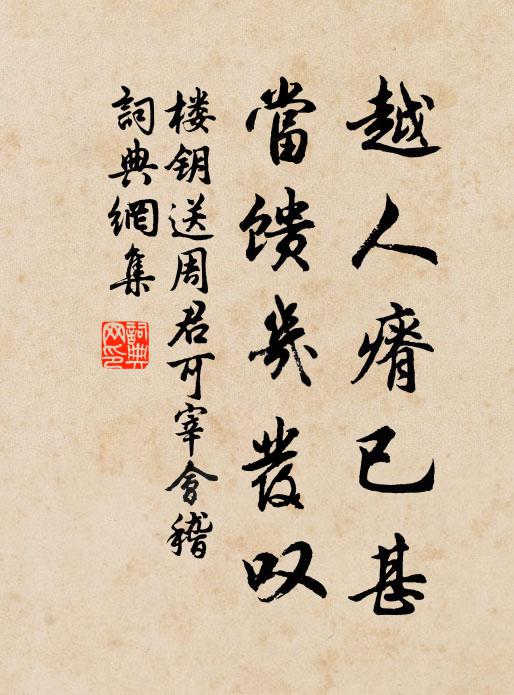 越人瘠已甚
當馈幾發叹
楼钥送周君可宰會稽
詞典網集
詞典網印